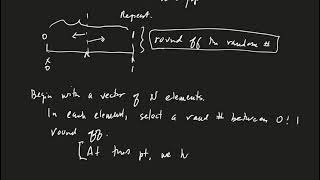 Repeat.
1
0 1
round off the random #
0 1
Begin with a vector of N elements.
In each element, select a rand # between 0 & 1
round off.
[At this pt, we h